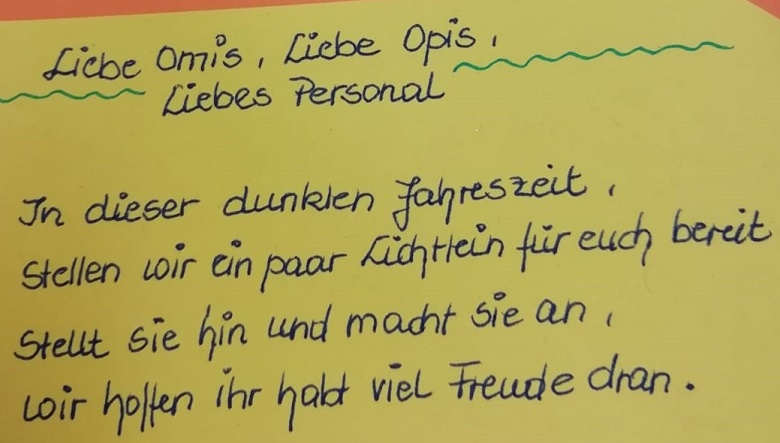 Liebe Omis, Liebe Opis,
Liebes Personal
In dieser dunklen Jahreszeit,
Stellen wir ein paar Lichtlein für euch bereit
Stellt sie hin und macht sie an,
wir hoffen ihr habt viel Freude dran.